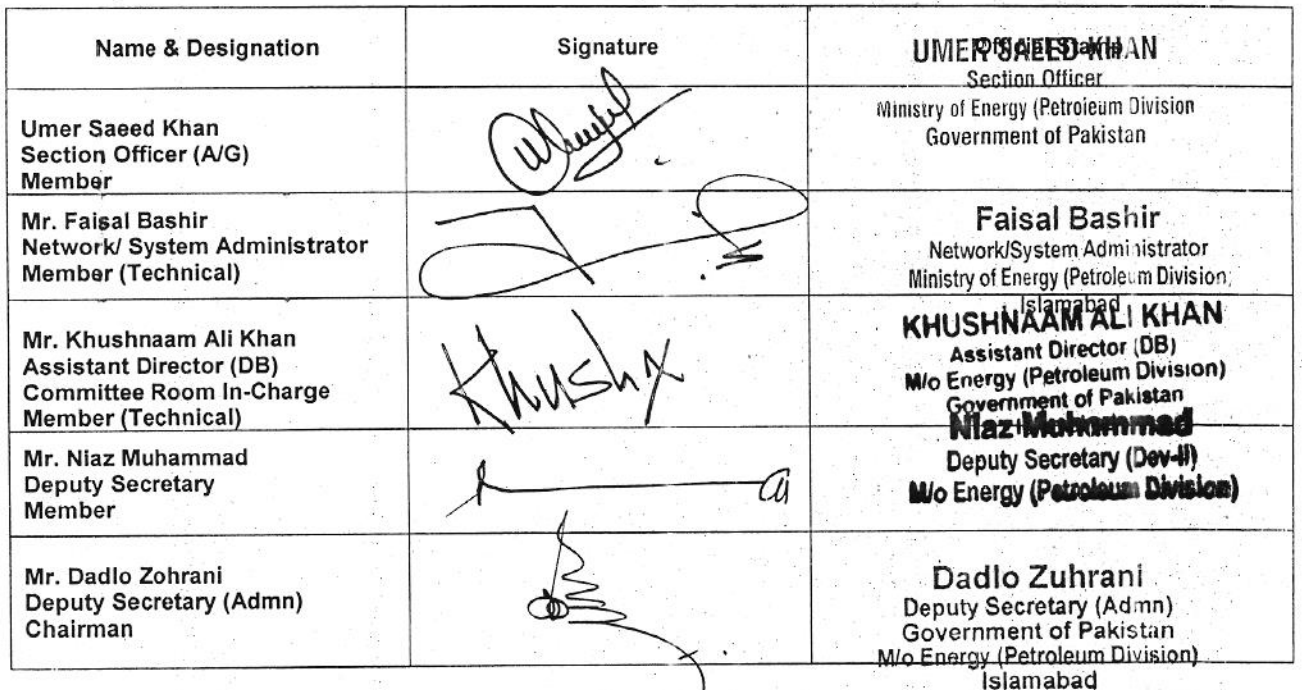 Name & Designation
Signature
Official Stamp
UMER SAEED KHAN
Section Officer
Ministry of Energy (Petroleum Division
Government of Pakistan
Umer Saeed Khan
Section Officer (A/G)
Member
Mr. Faisal Bashir
Network/ System Administrator
Member (Technical)
Faisal Bashir
Network/System Administrator
Ministry of Energy (Petroleum Division)
Islamabad
Mr. Khushnaam Ali Khan
Assistant Director (DB)
Committee Room In-Charge
Member (Technical)
Khush
KHUSHNAAM ALI KHAN
Assistant Director (DB)
M/o Energy (Petroleum Division)
Government of Pakistan
Mr. Niaz Muhammad
Deputy Secretary
Member
Niaz Muhammad
Deputy Secretary (Dev-II)
M/o Energy (Petroleum Division)
Mr. Dadlo Zohrani
Deputy Secretary (Admn)
Chairman
Dadlo Zuhrani
Deputy Secretary (Admn)
Government of Pakistan
M/o Energy (Petroleum Division)
Islamabad